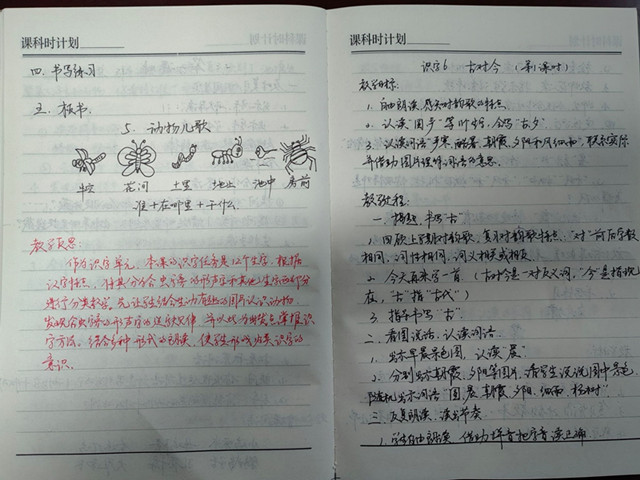 课科时计划
四、书写练习
五、板书
5、动物儿歌
半空 花间 土里 地上 池中 房前
谁+在哪里+干什么
教学反思:
作为识字单元,本课的识字任务是12个生字,根据
识字特点,对其分为含虫字旁的形声字和其他生字两部分
进行分类教学。先让学生结合生动有趣的图片认识动物,
发现含虫字旁的形声字的造字规律,并以此为出发点掌握识
字方法,结合多种形式的朗读,使学生形成归类识字的
意识。
课科时计划
识字6 古对今 (第1课时)
教学目标:
1、自由朗读,感知对韵歌的特点。
2、认读“圆”等生字,会写“古、夕”
3、认读词语“严寒、酷暑、朝霞、夕阳、和风、细雨”,联系实际
并借助图片理解词语的意思。
教学过程:
一、揭题,书写“古”
1、回顾上学期对韵歌,复习对韵歌特点:“对”前后字数
相同,词性相同,词义相对或相反
2、今天再来学一首(古对今是一对反义词,“今”是指现
在,“古”指“古代”)
3、指导书写“古”
二、看图说话,认读词语
1、出示早晨景色图,认读“晨”
2、分别出示朝霞、夕阳等图片,请学生说说图中景色,
随机出示词语“圆、晨、朝霞、夕阳、细雨、杨树”
三、反复朗读,读出节奏
1、学生自由朗读,借助拼音把字音读正确